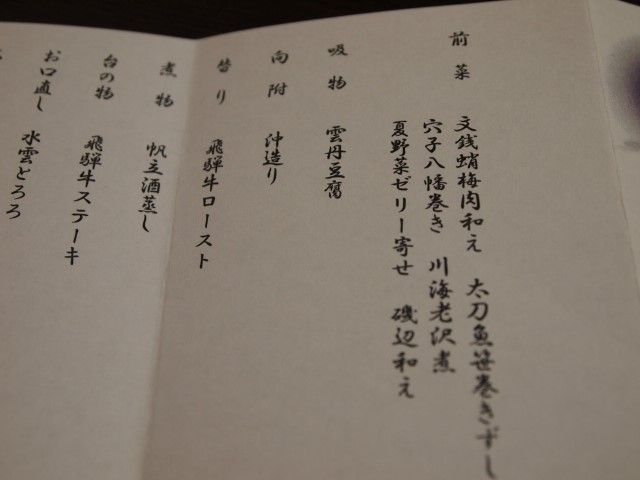 前菜
文銭蛸梅肉和え 太刀魚笹巻きずし
穴子八幡巻き 川海老沢煮
夏野菜ゼリー寄せ 磯辺和え
吸物
雲丹豆腐
向附
沖造り
替り
飛騨牛ロースト
煮物
帆立酒蒸し
台の物
飛騨牛ステーキ
お口直し
水雲とろろ